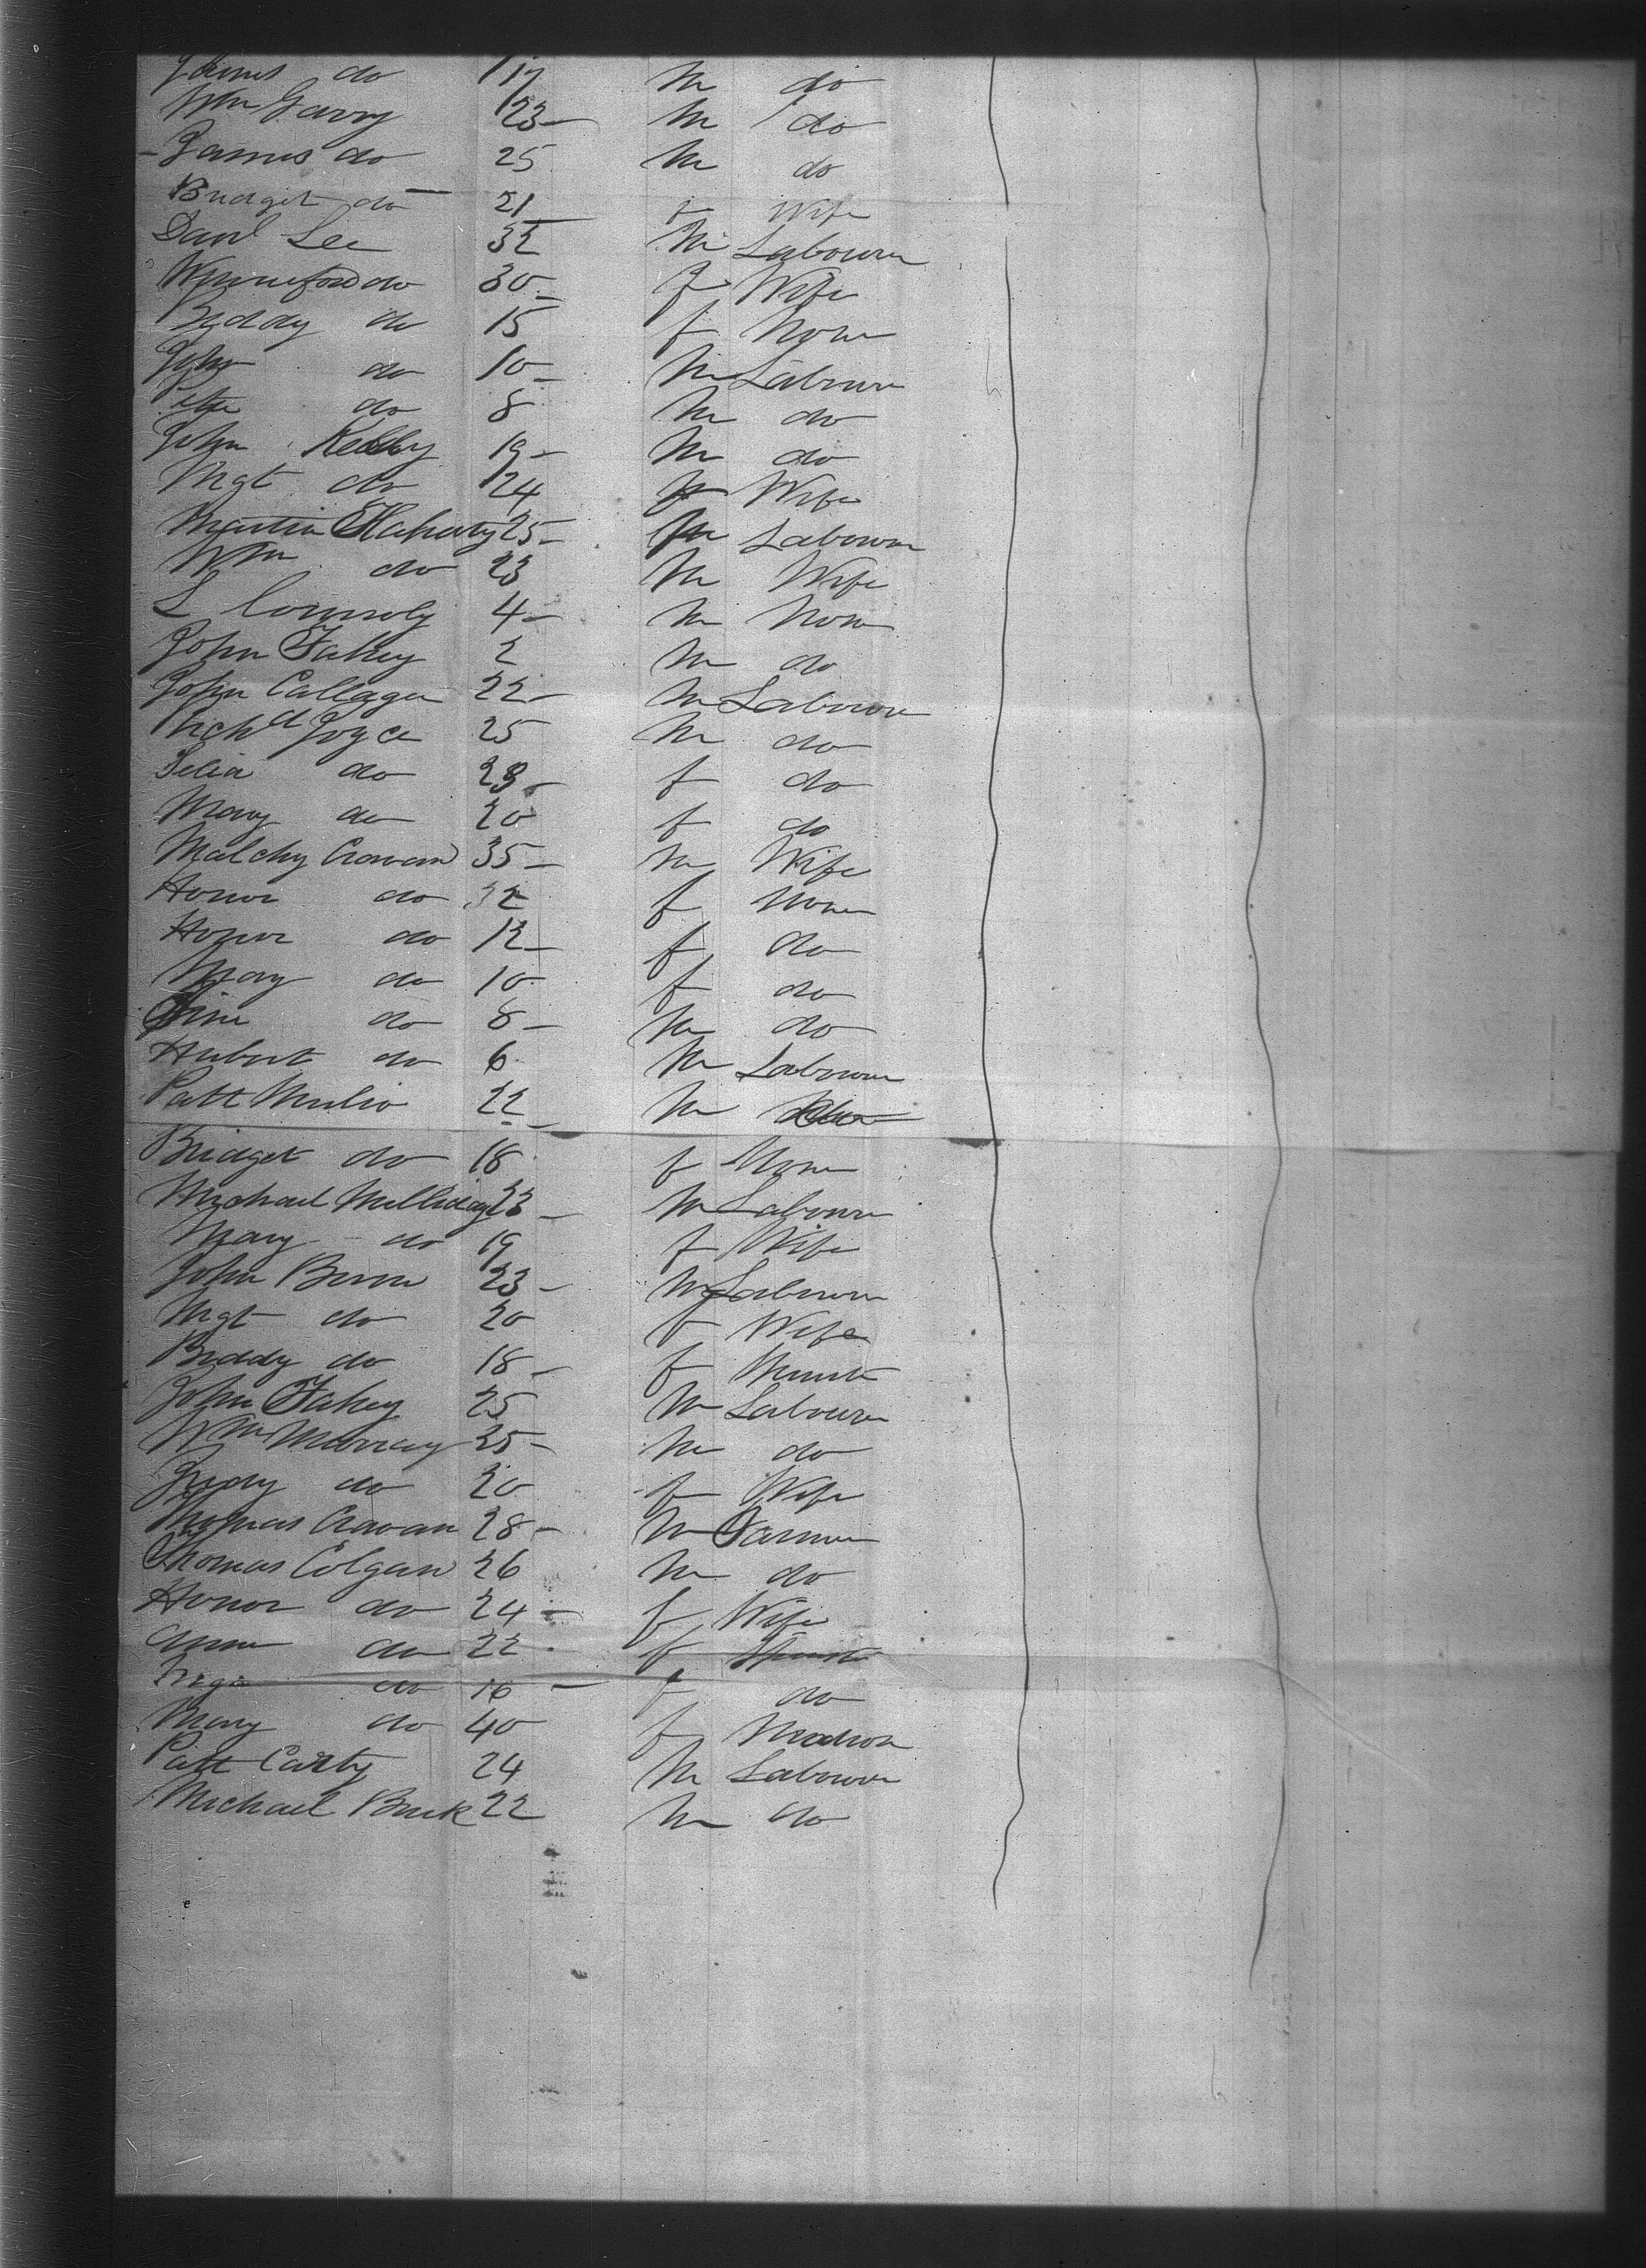 James do 17 M do
Wm Garry 23 M do
James do 25 M do
Bridget do 21 f Wife
Danl Lee 32 M Labourer
Winneford do 30 f Wife
Biddy do 15 f None
John do 10 M Labourer
Peter do 8 M do
John Kelly 19 M do
Mgt do 24 f Wife
Martin Flaherty 25 M Labourer
Wm do 23 M Wife
L Connoly 4 M None
John Fahey 2 M do
John Callagen 22 M Labourer
Richd Joyce 25 M do
Selia do 23 f do
Mary do 20 f do
Malchy Cravan 35 M Wife
Honor do 32 f None
Honor do 12 f do
Mary do 10 f do
do 8 M do
Hubert do 6 M Labourer
Patt 22 M
Bridget do 18 f None
Michael 23 M Labourer
Mary do 19 f Wife
John 23 M Labourer
Mgt do 20 f Wife
Biddy do 18 f
John Fahey 25 M Labourer
Wm Murray 25 M do
Judy do 20 f Wife
Thomas Cravan 28 M Farmer
Thomas Colgan 26 M do
Honor do 24 f Wife
Anne do 22 f
do 16 f do
Mary do 40 f Matron
Patt Carty 24 M Labourer
Michael Burk 22 M do